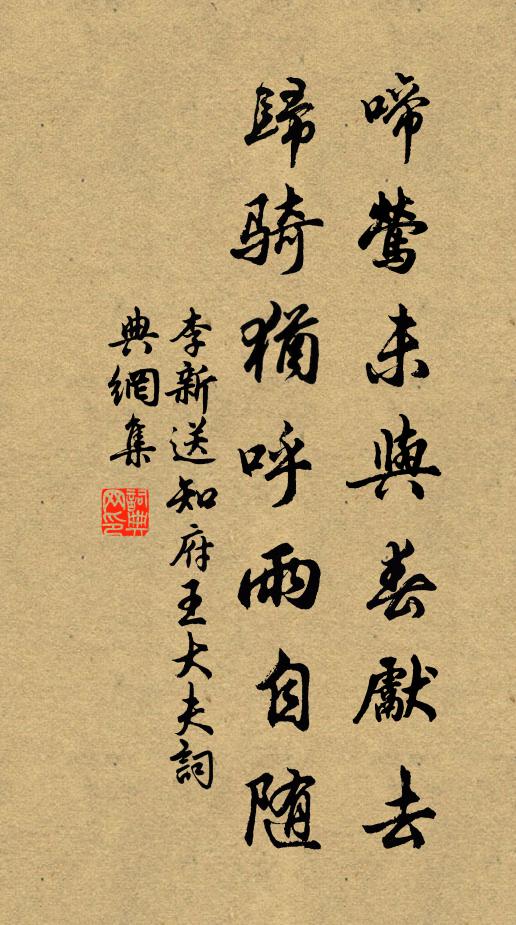 啼鶯未與春獻去
歸騎猶呼雨自随
李新送知府王大夫詞
典網集
詞典網印